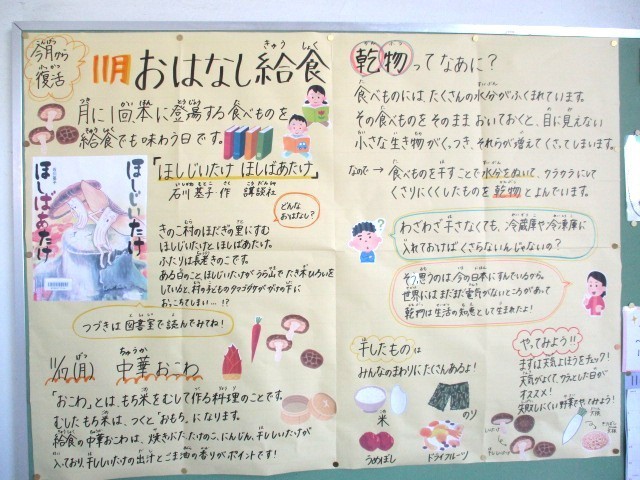 今月から
復活
11月 おはなし給食
月に1回本に登場する食べものを
給食でも味わう日です。
ほしじいたけ
ほしばあたけ
「ほしじいたけ ほしばあたけ」
石川 基子 作 講談社
どんな
おはなし?
きのこ村のほだぎの里にすむ
ほしじいたけと、ほしばあたけ。
ふたりは長老きのこです。
ある日のこと、ほしじいたけがうら山でたき木ひろいを
していると、村の子どものタマゴタケががけの下に
おっこちてしまい…!?
つづきは図書室で読んでみてね!
11/17(月) 中華おこわ
「おこわ」とは、もち米をむして作る料理のことです。
むしたもち米は、つくと"おもち"になります。
給食の中華おこわは、焼きぶたたけのこ、にんじん、干ししいたけが
入っており、干ししいたけの出汁とごま油の香りがポイントです!
乾物ってなあに?
食べものには、たくさんの水分がふくまれています。
その食べものをそのままおいておくと、目に見えない
小さな生き物がくっつき、それらが増えてくさってしまいます。
なので → 食べものを干すことで水分をぬいて、カラカラにして
くさりにくくしたものを乾物とよんでいます。
わざわざ干さなくても、冷蔵庫や冷凍庫に
入れておけばくさらないんじゃないの?
そう思うのは、今の日本にすんでいるから。
世界にはまだまだ電気がないところがあって
乾物は生活の知恵として生まれたよ!
干したものは
みんなのまわりにたくさんあるよ!
米
のり
うめぼし
ドライフルーツ
やってみよう!!
まずは天気よほうをチェック!
天気がよくて、カラッとした日が
オススメ!
失敗しにくい野菜でやってみよう!